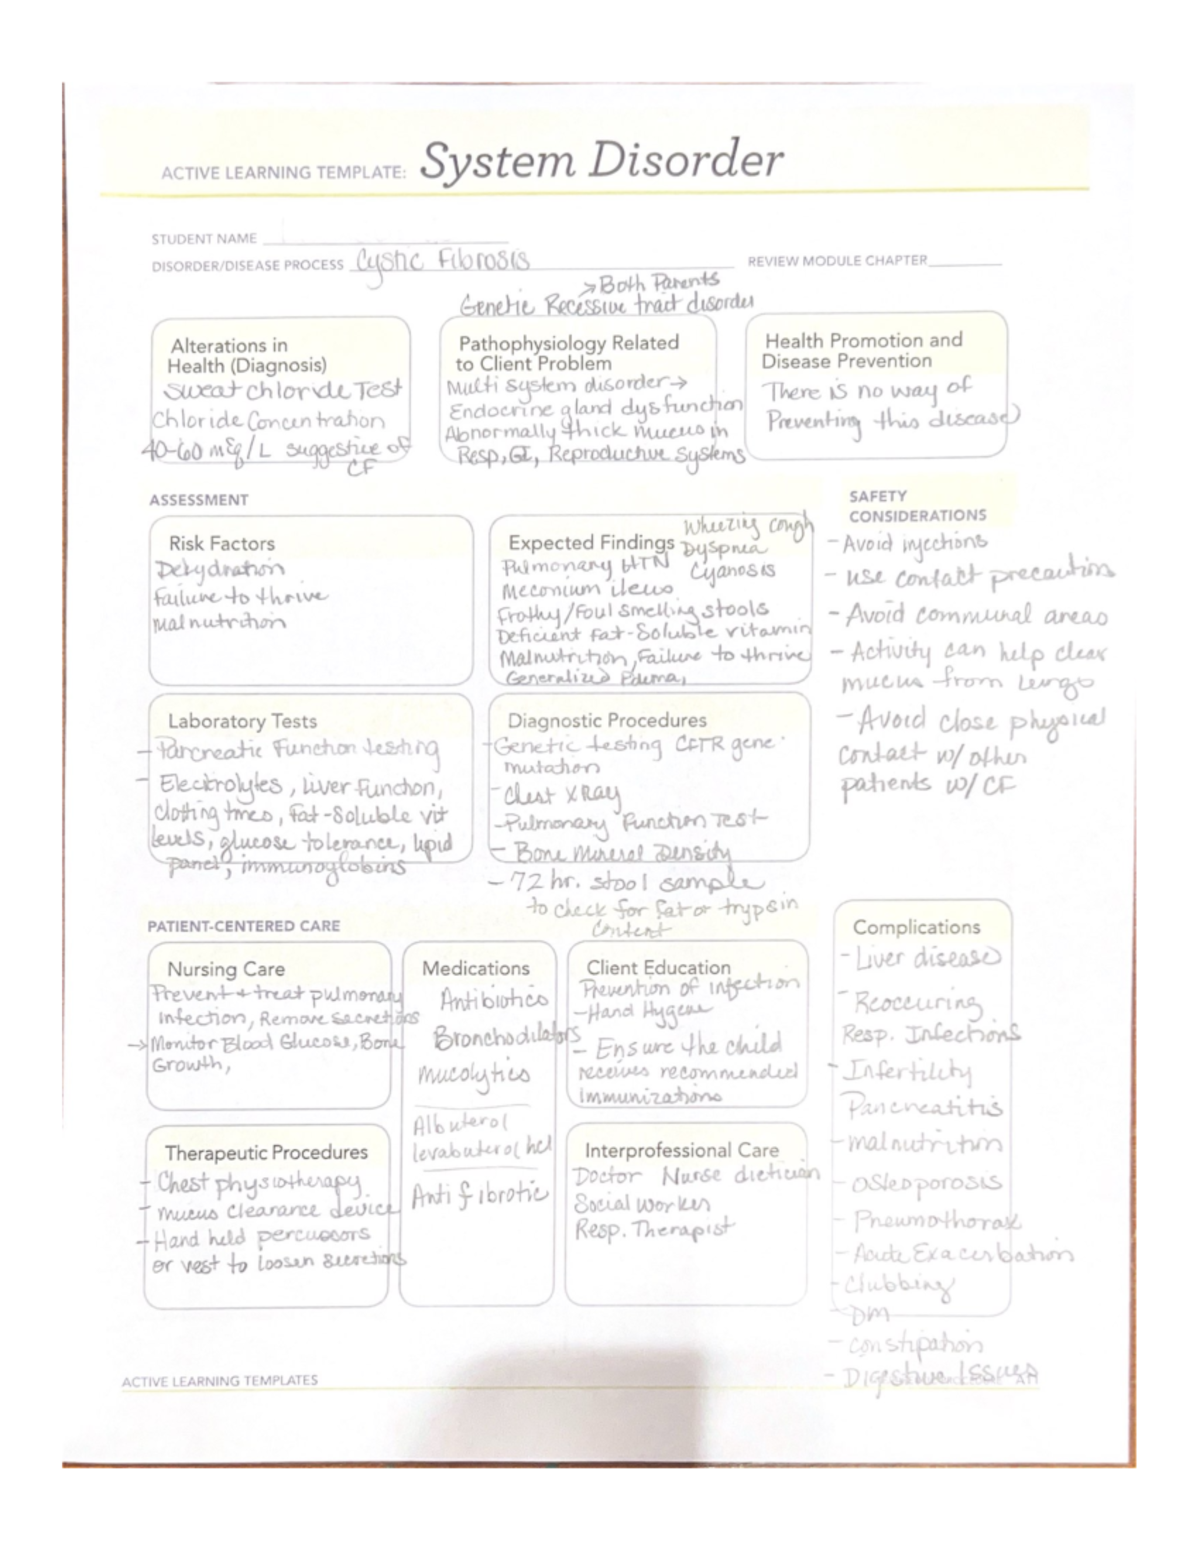 ACTIVE LEARNING TEMPLATE: System Disorder
STUDENT NAME
DISORDER/DISEASE PROCESS Cystic Fibrosis
REVIEW MODULE CHAPTER
→Both Parents
Genetic Recessive trait disorder
Alterations in
Health (Diagnosis)
Sweat chloride Test
Chloride Concentration
40-60 mEq/L suggestive of
CF
Pathophysiology Related
to Client Problem
Multi system disorder→
Endocrine gland dysfunction
Abnormally thick mucus in
Resp, GI, Reproductive Systems
Health Promotion and
Disease Prevention
There is no way of
Preventing this disease
ASSESSMENT
Risk Factors
Dehydration
Failure to thrive
Malnutrition
Expected Findings
Wheezing cough
Dyspnea
Cyanosis
Pulmonary HTN
Meconium ileus
Frothy/Foul smelling stools
Deficient Fat-Soluble vitamin
Malnutrition, Failure to thrive
Generalized Edema,
SAFETY
CONSIDERATIONS
- Avoid injections
- use contact precaution
- Avoid communal areas
- Activity can help clear
mucus from lungs
- Avoid close physical
contact w/ other
patients w/ CF
Laboratory Tests
- Pancreatic Function testing
- Electrolytes, liver Function,
clotting times, Fat-Soluble vit
levels, glucose tolerance, lipid
panel, immunoglobins
Diagnostic Procedures
- Genetic testing CFTR gene
mutation
- Chest X Ray
- Pulmonary Function Test
- Bone Mineral Density
- 72 hr. stool sample
to check for fat or trypsin
content
PATIENT-CENTERED CARE
Nursing Care
Prevent + treat pulmonary
infection, Remove secretions
→ Monitor Blood Glucose, Bone
Growth,
Medications
Antibiotics
Bronchodilators
Mucolytics
Albuterol
levabuterol hcl
Antifibrotic
Client Education
Prevention of infection
- Hand Hygene
- Ensure the child
receives recommended
Immunizations
Therapeutic Procedures
- Chest physiotherapy
- mucus clearance device
- Hand held percussors
or vest to loosen secretions
Interprofessional Care
Doctor Nurse dietician
Social worker
Resp. Therapist
Complications
- Liver disease
- Reoccuring
Resp. Infections
- Infertility
Pancreatitis
- malnutrition
- osteoporosis
- Pneumothorax
- Acute Exacerbation
- Clubbing
- DM
- constipation
- Digestive Issues
ACTIVE LEARNING TEMPLATES